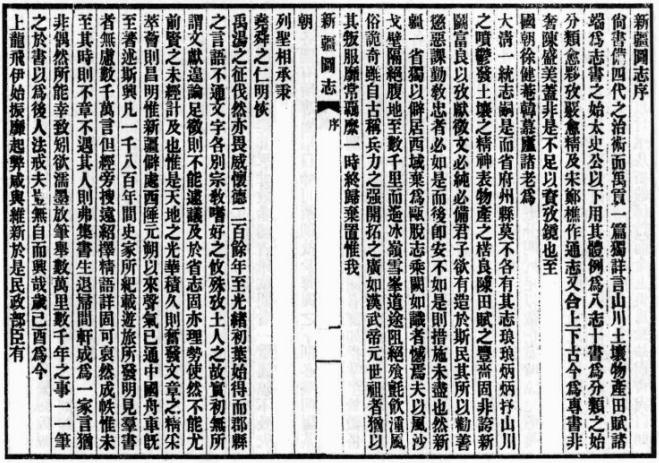 新疆圖志序
尙書備四代之治術而禹貢一篇獨詳言山川土壤物產田賦諸
端爲志書之始太史公以下用其體例爲八志十書爲分類之始
分類愈夥攷覈愈精及宋鄭樵作通志又合上下古今爲專書非
奢陳盛美蓋非是不足以資攷鏡也至
國朝徐健菴韓慕廬諸老爲
大清一統志嗣是而省府州縣莫不各有其志琅琅炳炳抒山川
之噴鬱發土壤之精神表物產之楛良陳田賦之豐嗇固非誇新
鬭富良以攷獻徵文必純必備君子欲有造於斯民其所以勸善
懲惡課勤敎忠者必如是而後卽安不如是則措施未盡也然新
疆一省獨以僻居西域棄爲甌脫志乘闕如識者憾焉夫以風沙
戈壁隔絕腹地至數千里而遙冰嶺雪峯道途阻絕飧氈飮湩風
俗詭奇雖自古稱兵力之强開拓之廣如漢武帝元世祖者猶以
其叛服靡常羈縻一時終歸棄置惟我
新疆圖志 序 一
朝
列聖相承秉
堯舜之仁明恢
禹湯之征伐然亦畏威懷德二百餘年至光緖初葉始得而郡縣
之言語不通文字各別宗敎嗜好之攸殊攷土人之故實初無所
謂文獻遑論足徵則不能遽議及於省志固亦理勢使然不能尤
前賢之未經計及也惟是天地之光華積久則奮發文章之精采
萃薈則昌明惟新疆僻處西陲元朔以來聲氣已通中國舟車旣
至著述斯興凡一千八百年間史家所紀載遊旅所發明見羣書
者無慮數千萬言但經旁搜遠紹擇精語詳固可裒然成帙惟未
至其時則不章不遇其人則弗集書生退間軒成爲一家言猶
非偶然所能幸致矧欲濡墨放筆舉數萬里數千年之事一一筆
之於書以爲後人法戒夫無自而興哉歲己酉爲今
上龍飛伊始振靡起弊咸與維新於是民政部臣有